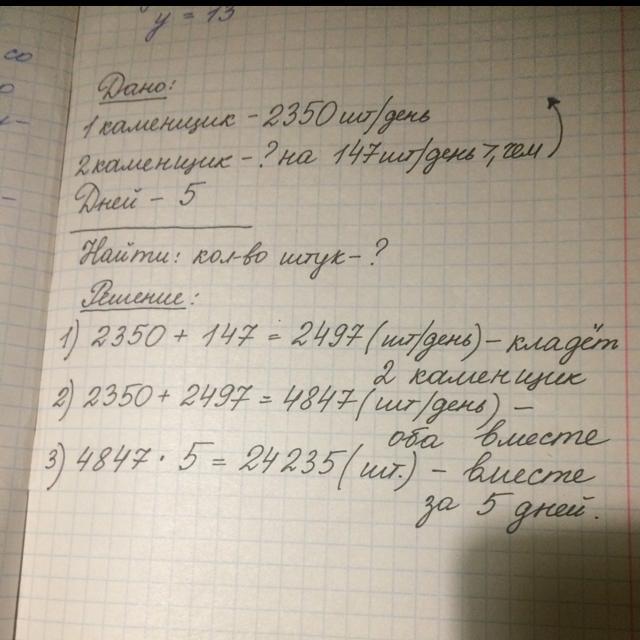 y = 13
со
Дано:
1 каменщик - 2350 шт/день
2 каменщик - ? на 147 шт/день >, чем
Дней - 5
Найти: кол-во штук - ?
Решение:
1) 2350 + 147 = 2497 (шт/день) - кладёт
2 каменщик
2) 2350 + 2497 = 4847 (шт/день) -
оба вместе
3) 4847 · 5 = 24235 (шт.) - вместе
за 5 дней.